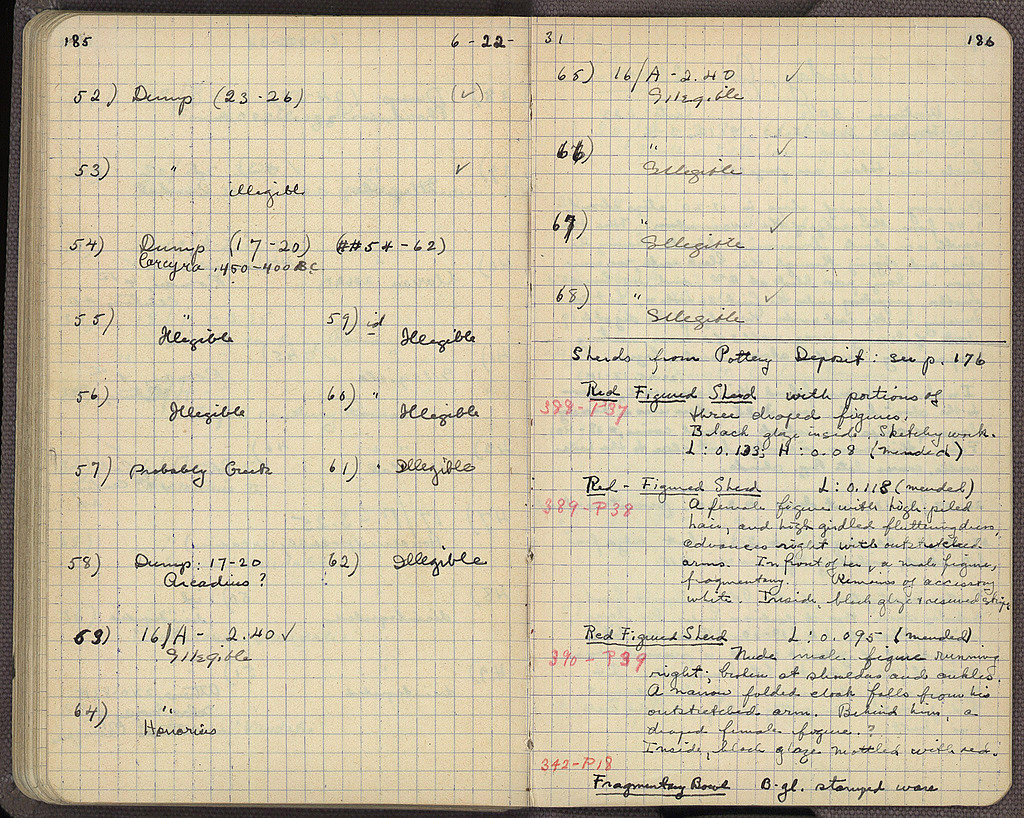 185
6-22-
52) Dump (23-26) (✓)
53) " ✓
Illegible
54) Dump (17-20) (##54-62)
Corcyra .450-400 BC
55) "
Illegible
56)
Illegible
57) Probably Greek
58) Dump: 17-20
Arcadius?
59) id
Illegible
60) "
Illegible
61) " Illegible
62) Illegible
63) 16/A - 2.40 ✓
Illegible
64) "
Honorius
31
186
65) 16/A - 2.40 ✓
Illegible
66) " ✓
Illegible
67) " ✓
Illegible
68) " ✓
Illegible
Sherds from Pottery Deposit: see p. 176
Red Figured Sherd with portions of
388-P37
three draped figures.
Black glaze inside. Sketchy work.
L: 0.133; H: 0.08 (mended)
Red-Figured Sherd L: 0.118 (mended)
389-P38
A female figure with high-piled
hair, and high girdled fluttering dress,
advances right with outstretched
arms. In front of her, a male figure,
fragmentary. Remains of accessory
white. Inside, black glaze & reserved stripe
Red Figured Sherd L: 0.095 (mended)
390-P39
Nude male figure running
right; broken at shoulders and ankles.
A narrow folded cloak falls from his
outstretched arm. Behind him, a
draped female figure.?
Inside, black glaze mottled with red.
342-P18
Fragmentary Bowl B-gl. stamped ware